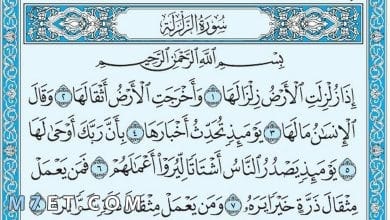 سُورَةُ الزَّلْزَلَةِ
بِسْمِ اللَّهِ الرَّحْمَٰنِ الرَّحِيمِ
إِذَا زُلْزِلَتِ الْأَرْضُ زِلْزَالَهَا ١ وَأَخْرَجَتِ الْأَرْضُ أَثْقَالَهَا ٢ وَقَالَ
الْإِنسَانُ مَا لَهَا ٣ يَوْمَئِذٍ تُحَدِّثُ أَخْبَارَهَا ٤ بِأَنَّ رَبَّكَ أَوْحَىٰ لَهَا
٥ يَوْمَئِذٍ يَصْدُرُ النَّاسُ أَشْتَاتًا لِّيُرَوْا أَعْمَالَهُمْ ٦ فَمَن يَعْمَلْ
مِثْقَالَ ذَرَّةٍ خَيْرًا يَرَهُ ٧ وَمَن يَعْمَلْ مِثْقَالَ
MZEET.COM